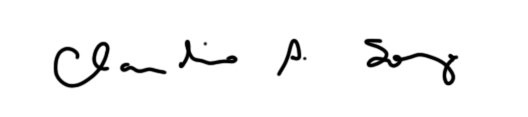 Claudio S. Song